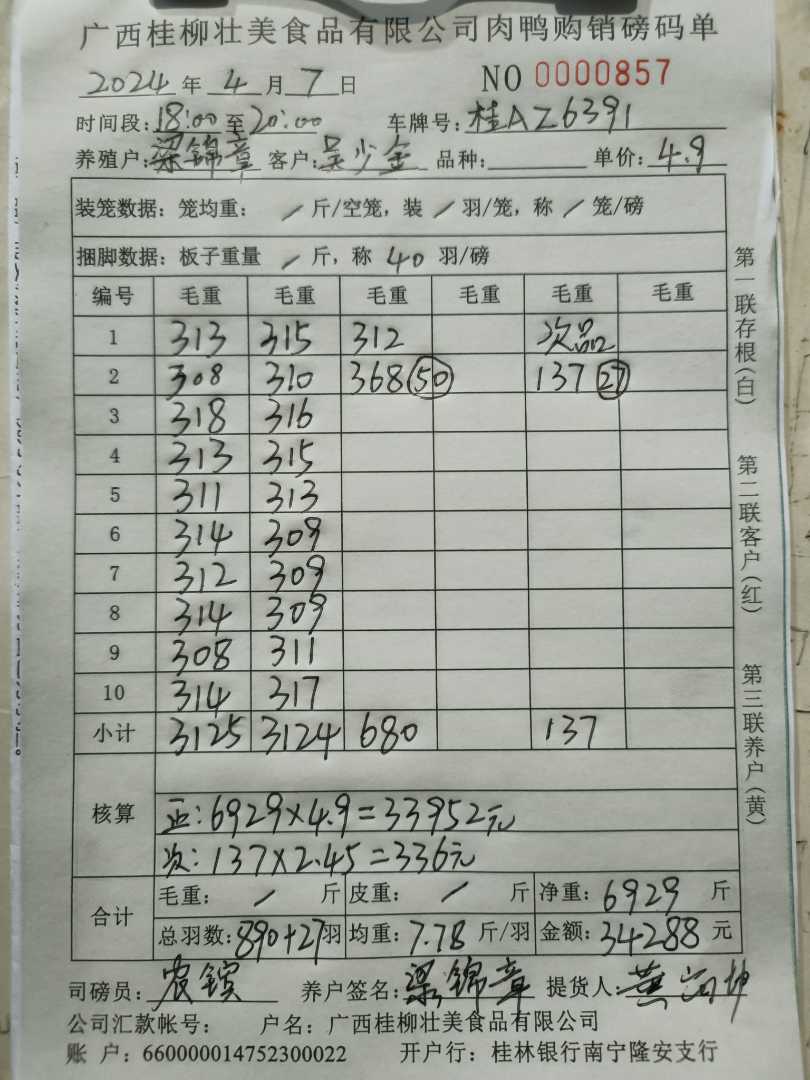 广西桂柳壮美食品有限公司肉鸭购销磅码单
2024 年 4 月 7 日 NO 0000857
时间段:18:00 至 20:00 车牌号:桂AZ6391
养殖户:梁锦章 客户:吴少金 品种: 单价:4.9
装笼数据:笼均重: / 斤/空笼,装 / 羽/笼,称 / 笼/磅
捆脚数据:板子重量 / 斤,称 40 羽/磅
编号 毛重 毛重 毛重 毛重 毛重 毛重
1 313 315 312 次品
2 308 310 368 50 137 27
3 318 316
4 313 315
5 311 313
6 314 309
7 312 309
8 314 309
9 308 311
10 314 317
小计 3125 3124 680 137
核算
正:6929×4.9=33952元
次:137×2.45=336元
合计
毛重: / 斤 皮重: / 斤 净重:6929 斤
总羽数:890+27羽 均重:7.78 斤/羽 金额:34288 元
司磅员:农镔 养户签名:梁锦章 提货人:黄
公司汇款帐号: 户名:广西桂柳壮美食品有限公司
账 户:660000014752300022 开户行:桂林银行南宁隆安支行
第一联存根(白)
第二联客户(红)
第三联养户(黄)